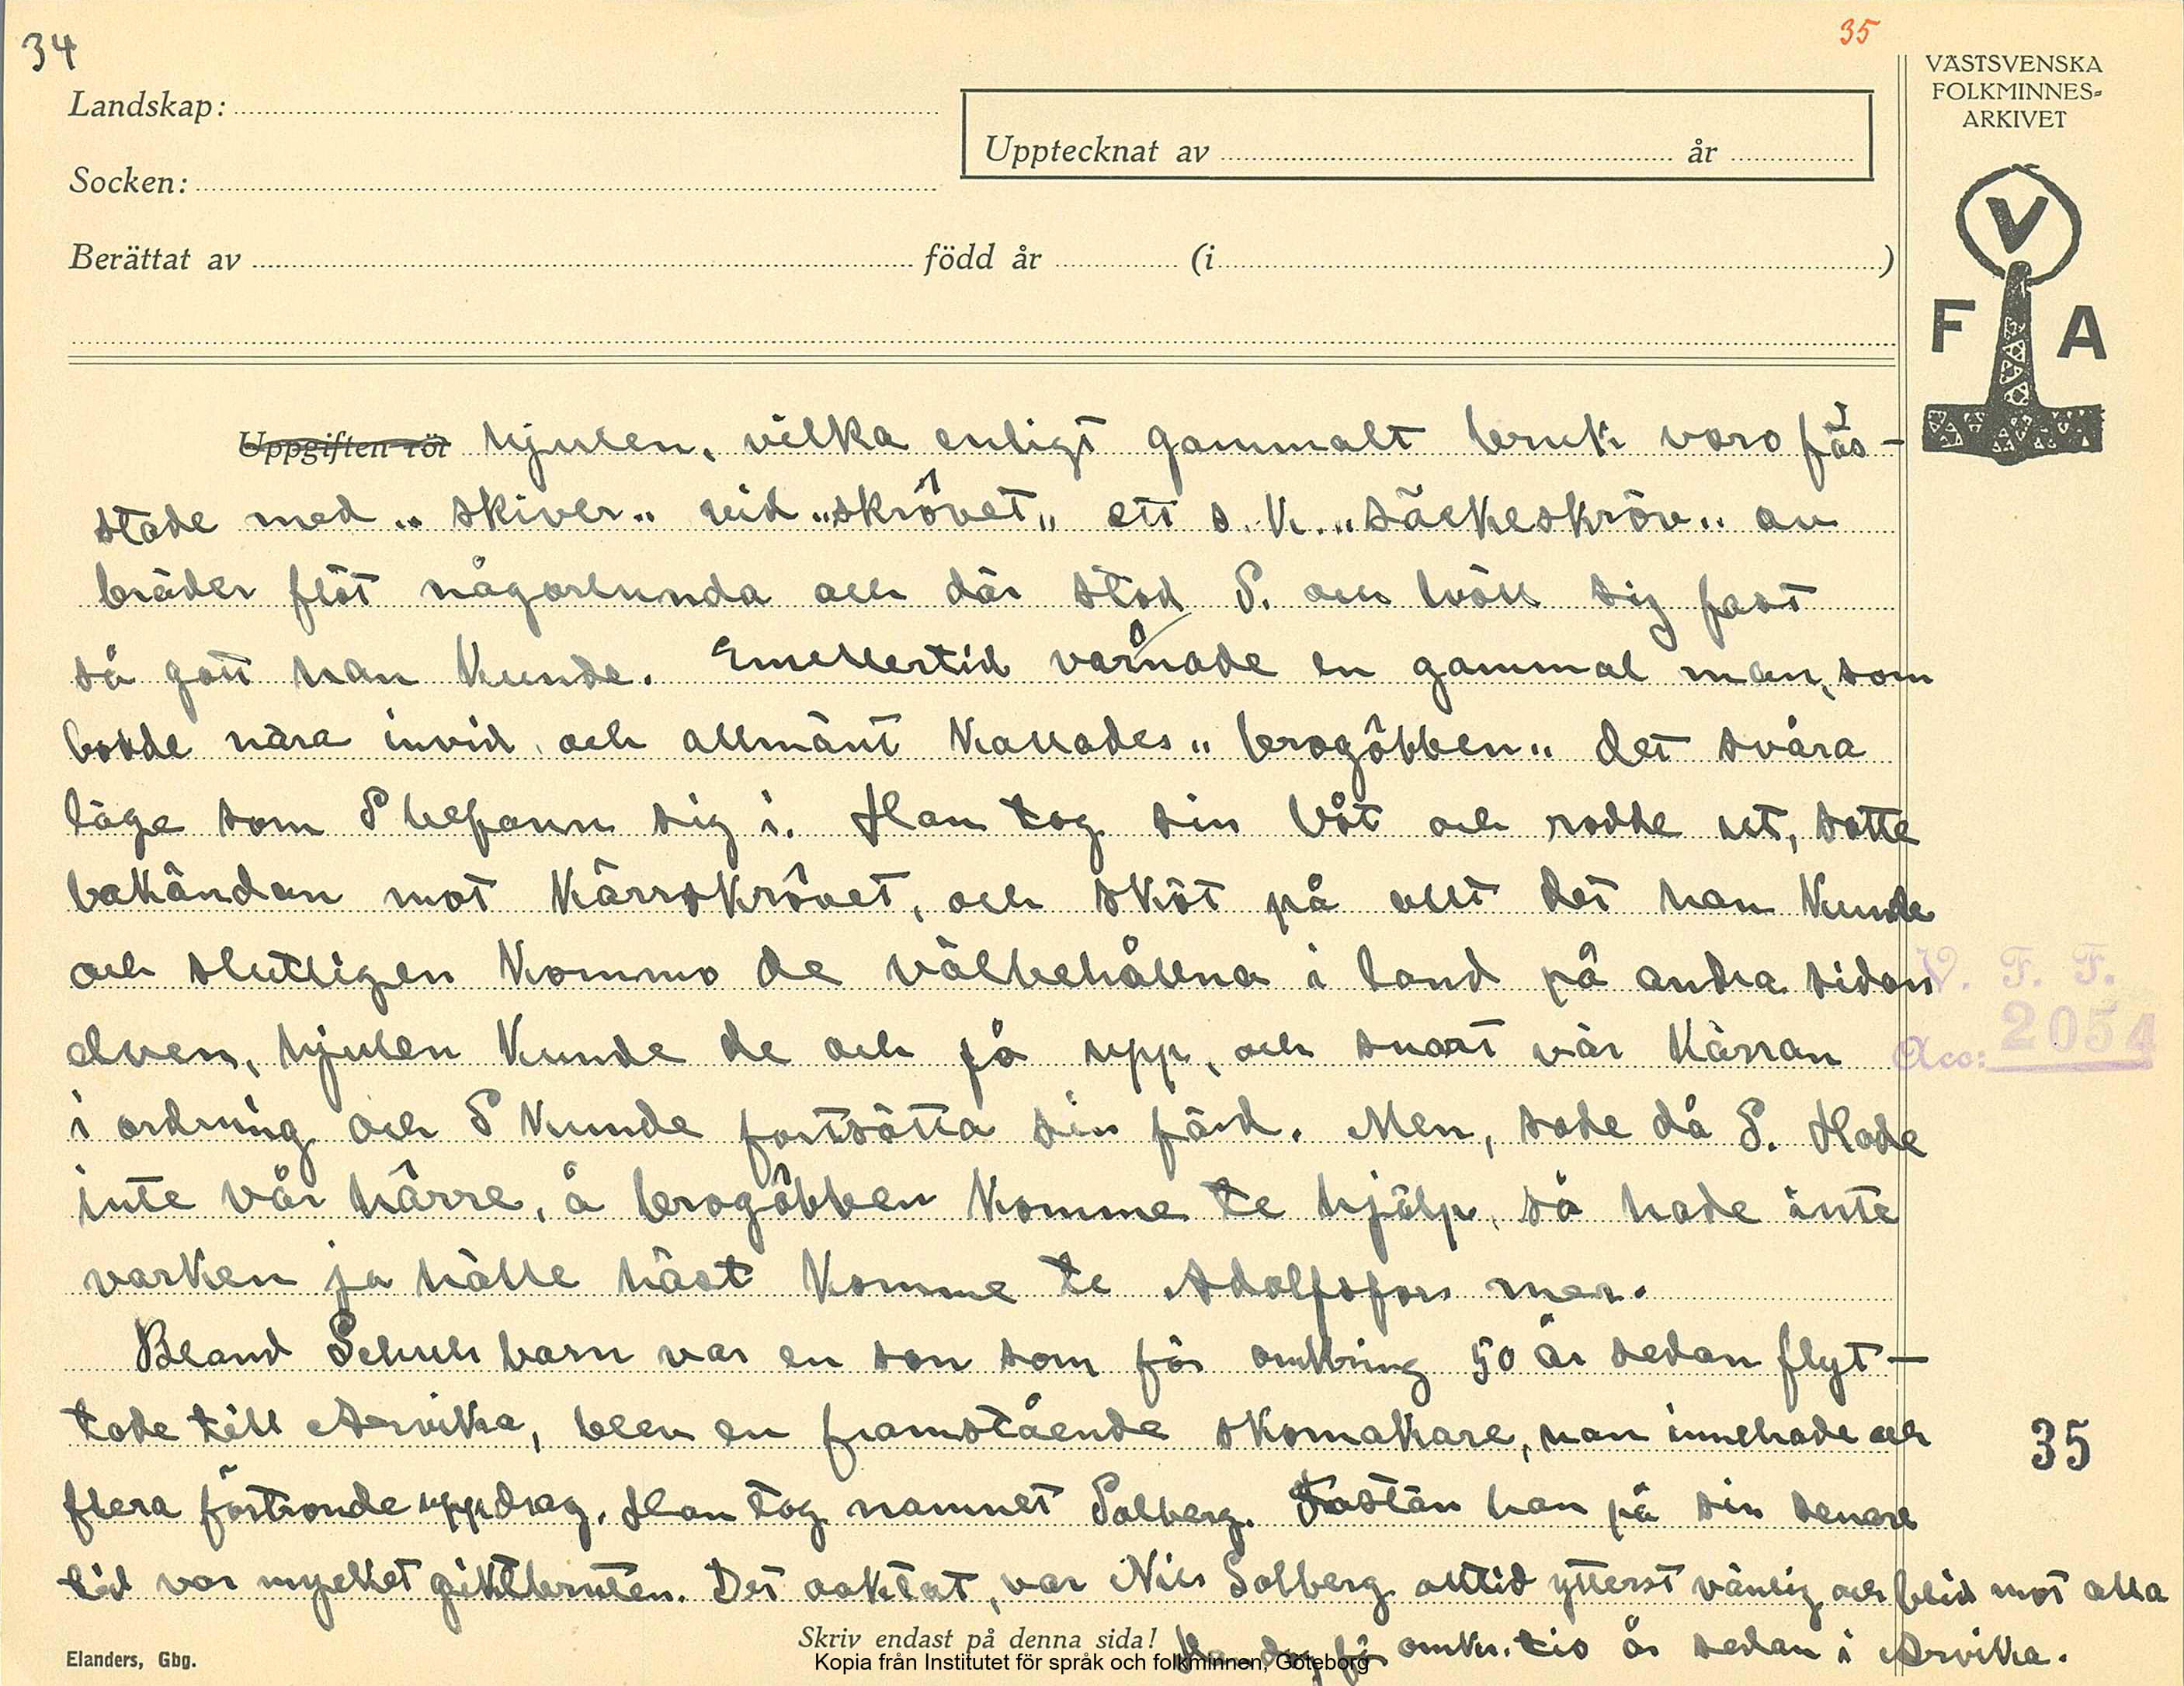 34
35
VÄSTSVENSKA
FOLKMINNES-
ARKIVET
Landskap:
Upptecknat av år
Socken:
Berättat av född år (i )
V
F A
Uppgiften rör hjulen, vilka enligt gammalt bruk voro fäs-
stade med „ skiver„ vid „skrövet„ ett s.k. „säckeskröv„ av
bräder flöt någorlunda och där stod S. och höll sig fast
så gott han kunde. Emellertid varnade en gammal man, som
bodde nära invid, och allmänt kallades „ brogôbben„ det svåra
läge som S befann sig i. Han tog sin båt och rodde ut, satte
bakändan mot kärrskrövet, och sköt på allt det han kunde
och slutligen kommo de välbehållna i land på andra sidan
elven, hjulen kunde de och få upp, och snart var kärran
i ordning och S kunde fortsätta sin färd. Men, sade då S. Hade
inte vår härre, å brogôbben komme te hjälp, så hade inte
varken ja hälle häst komme te Adolfsfors mer.
Bland Schuls barn var en son som för omkring 50 år sedan flyt-
tade till Arvika, blev en framstående skomakare, han innehade och
flera förtroende uppdrag. Han tog namnet Solberg. Fastän han på sin senare
tid var mycket giktbruten. Det oaktat, var Nils Solberg alltid ytterst vänlig och blid mot alla
Han dog för omkr. tio år sedan i Arvika.
V. F. F.
Acc: 2054
35
Skriv endast på denna sida!
Elanders, Gbg.
Kopia från Institutet för språk och folkminnen, Göteborg